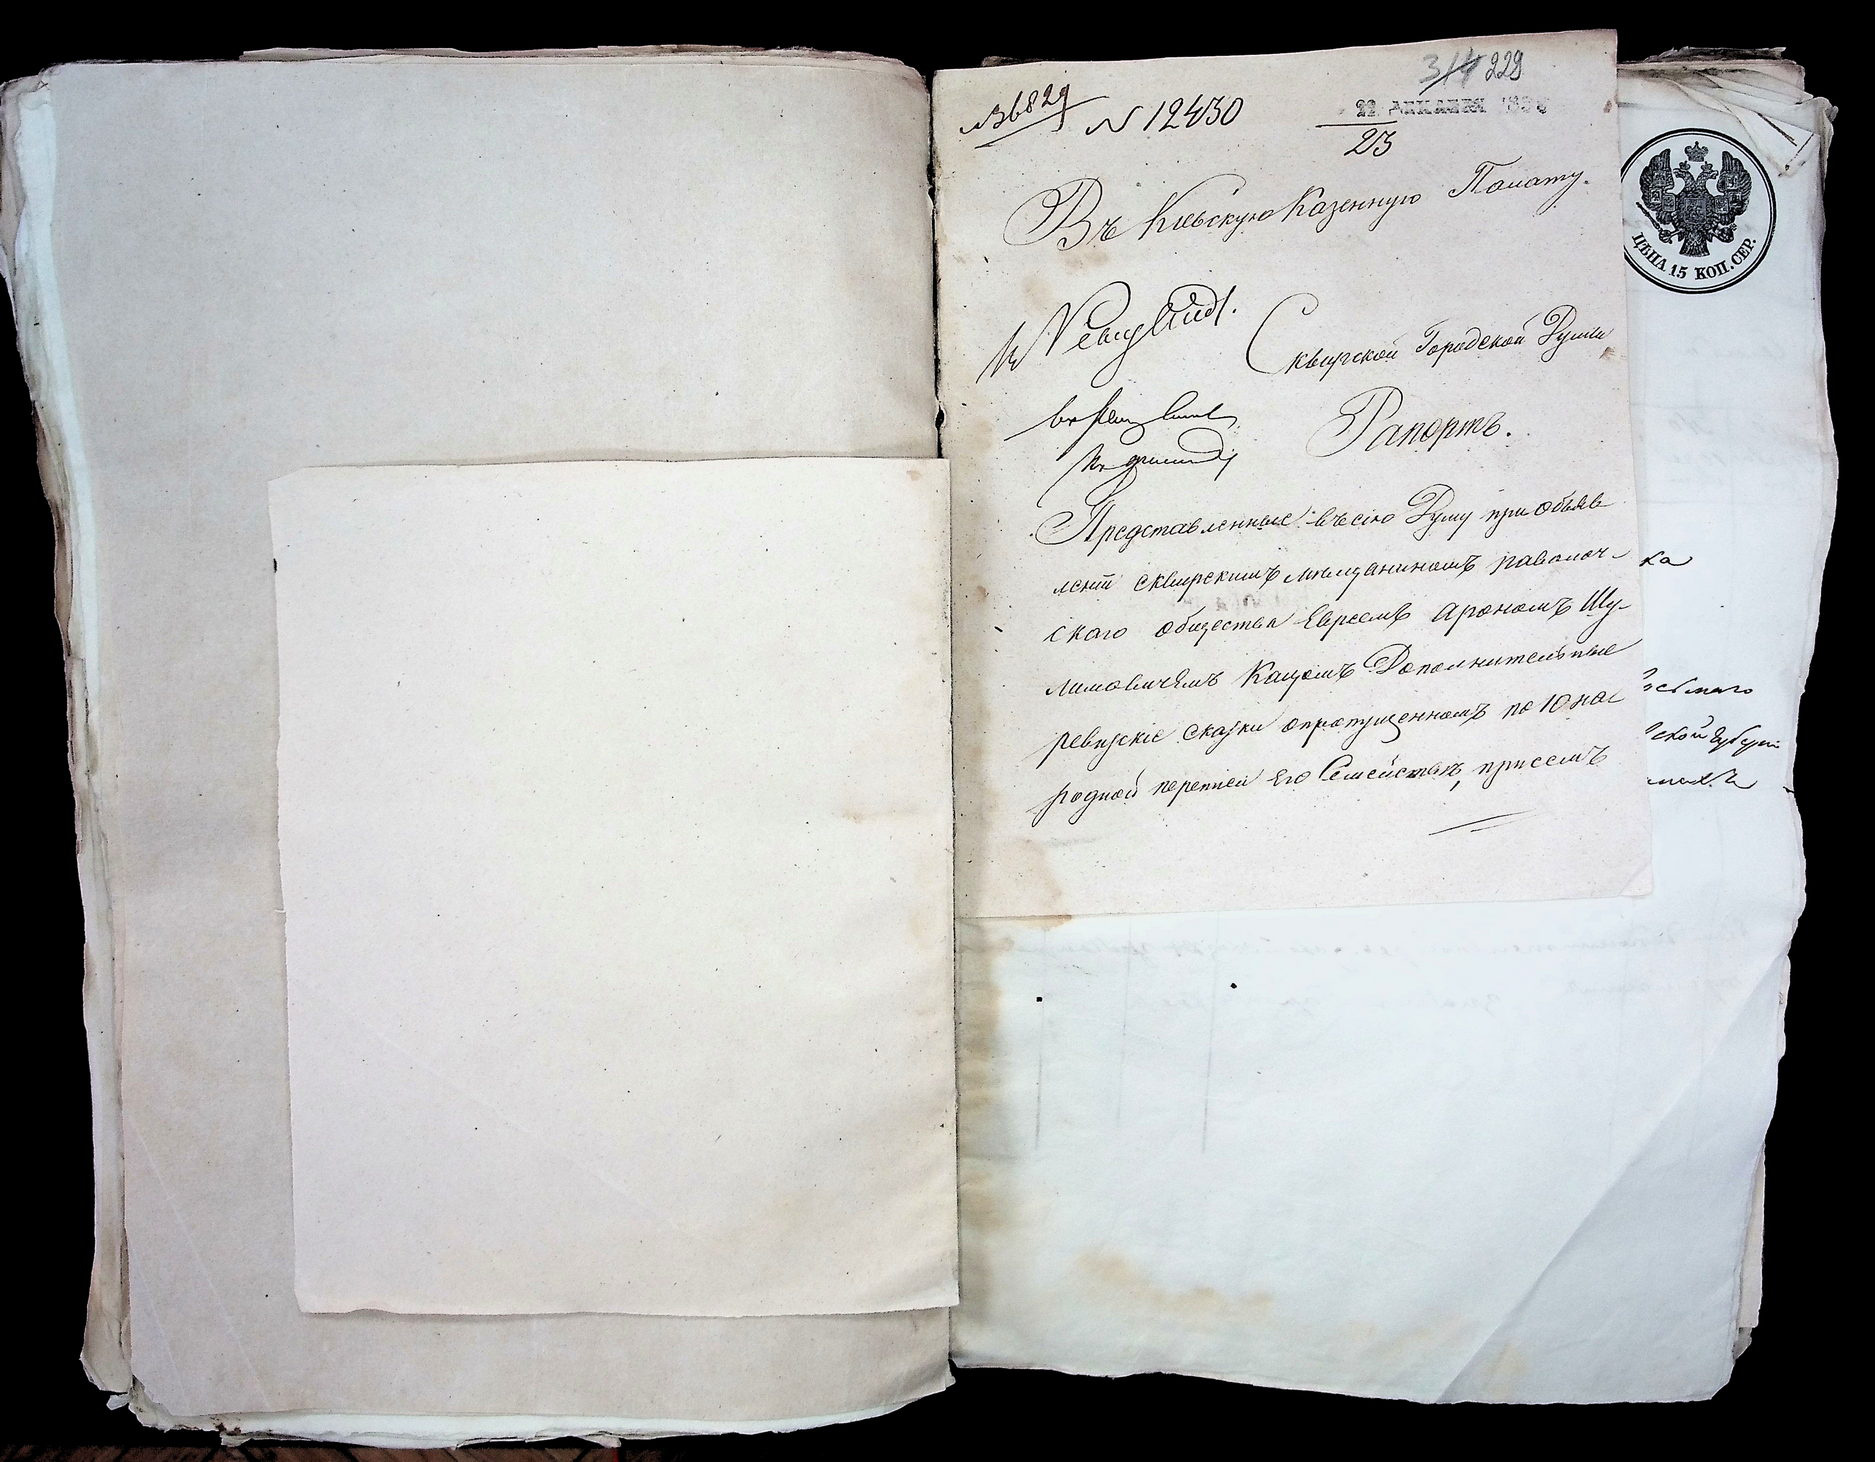 314 229
№ 6829
N 12430
22 ДЕКАБРЯ
23
Въ Кіевскую Казенную Палату.
Сквирской Городской Думы
Рапортъ.
Представленные въ сію Думу при объяв
леніи сквирскимъ мѣщаниномъ паволоч-
скаго общества Евреемъ Арономъ Шу-
лимовичемъ Кацомъ Дополнительные
ревизскіе сказки о пропущенномъ по 10 на
родной переписи его Семействѣ, при семъ
ЦѢНА 15 КОП. СЕР.
ка
ской Губерніи